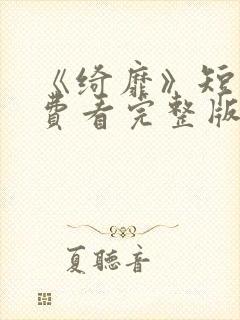 《绮靡》短
费看完整版
夏聽音